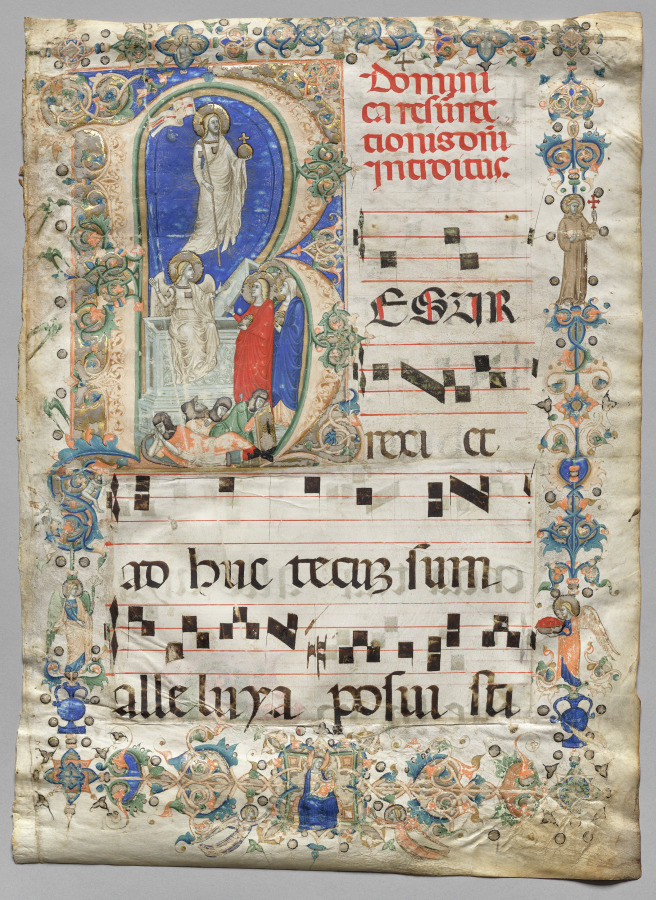 Domini
ca resurrec
tionis dni
introitus.
R
ESUR
rexi et
ad huc tecuz sum
alleluya posui sti